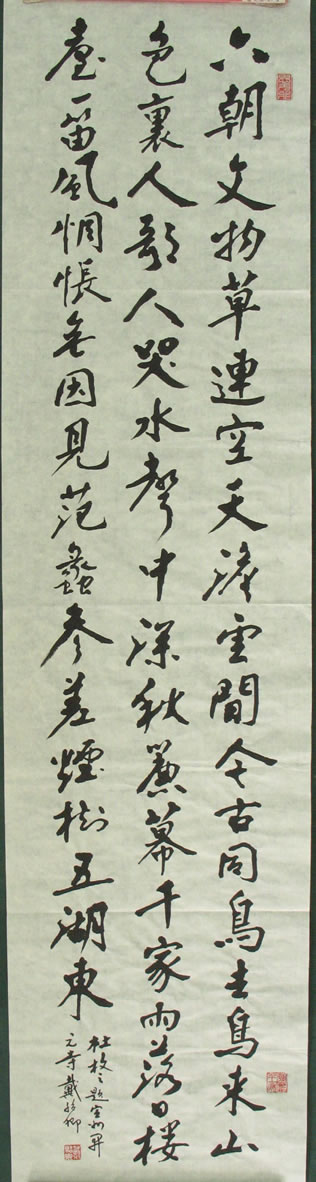 六朝文物草連空天澹雲間今古同鳥去鳥來山
色裏人歌人哭水聲中深秋簾幕千家雨落日楼
臺一笛風惆悵無因見范蠡參差煙樹五湖東
杜牧之題宣州開
元寺戴卿